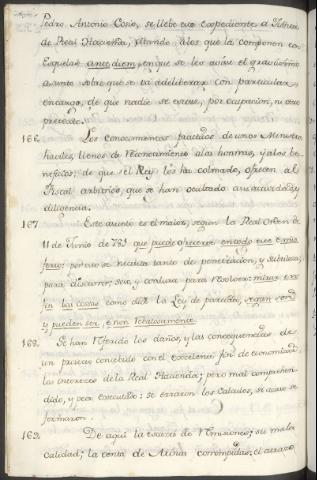 Pedro Antonio Cosio, se llebe este expediente a Junta
de Real Hacienda, citando a los que la componen con
Esquelas ante diem, en que se les avise el gravissimo
asunto sobre que se ha de deliberar con particular
encargo, de que nadie se escuse, por ocupacion, ni otro
pretexto.
166. Los conocimientos practicos de unos Ministros
haciles, llenos de reconocimiento a las honrras, y a los be-
neficios, de que el Rey los ha colmado, ofrecen al
Fiscal arbitrios, que se han ocultado a su actividad y
diligencia.
167. Este asunto es el maior, segun la Real Orden de
11 de Junio de 781 que puede ofrecerse en todo este
por esto se necesita tanto de penetracion, y subtileza
para discurrir, seso, y cordura para resolver: mirar
en las cosas como dice la Ley de partida, segun son
y pueden ser, e non rebatosamente.
168. Se han referido los daños, y las consequencias de
un proiecto concebido con el excelente fin de economizar
los intereses de la Real Hacienda; pero mal comprehen-
dido, y peor executado: se erraron los Calculos, si acaso se
formaron.
169. De aqui la escases de remisiones; su mala
calidad; la venta de Arina corrompida; el atraso